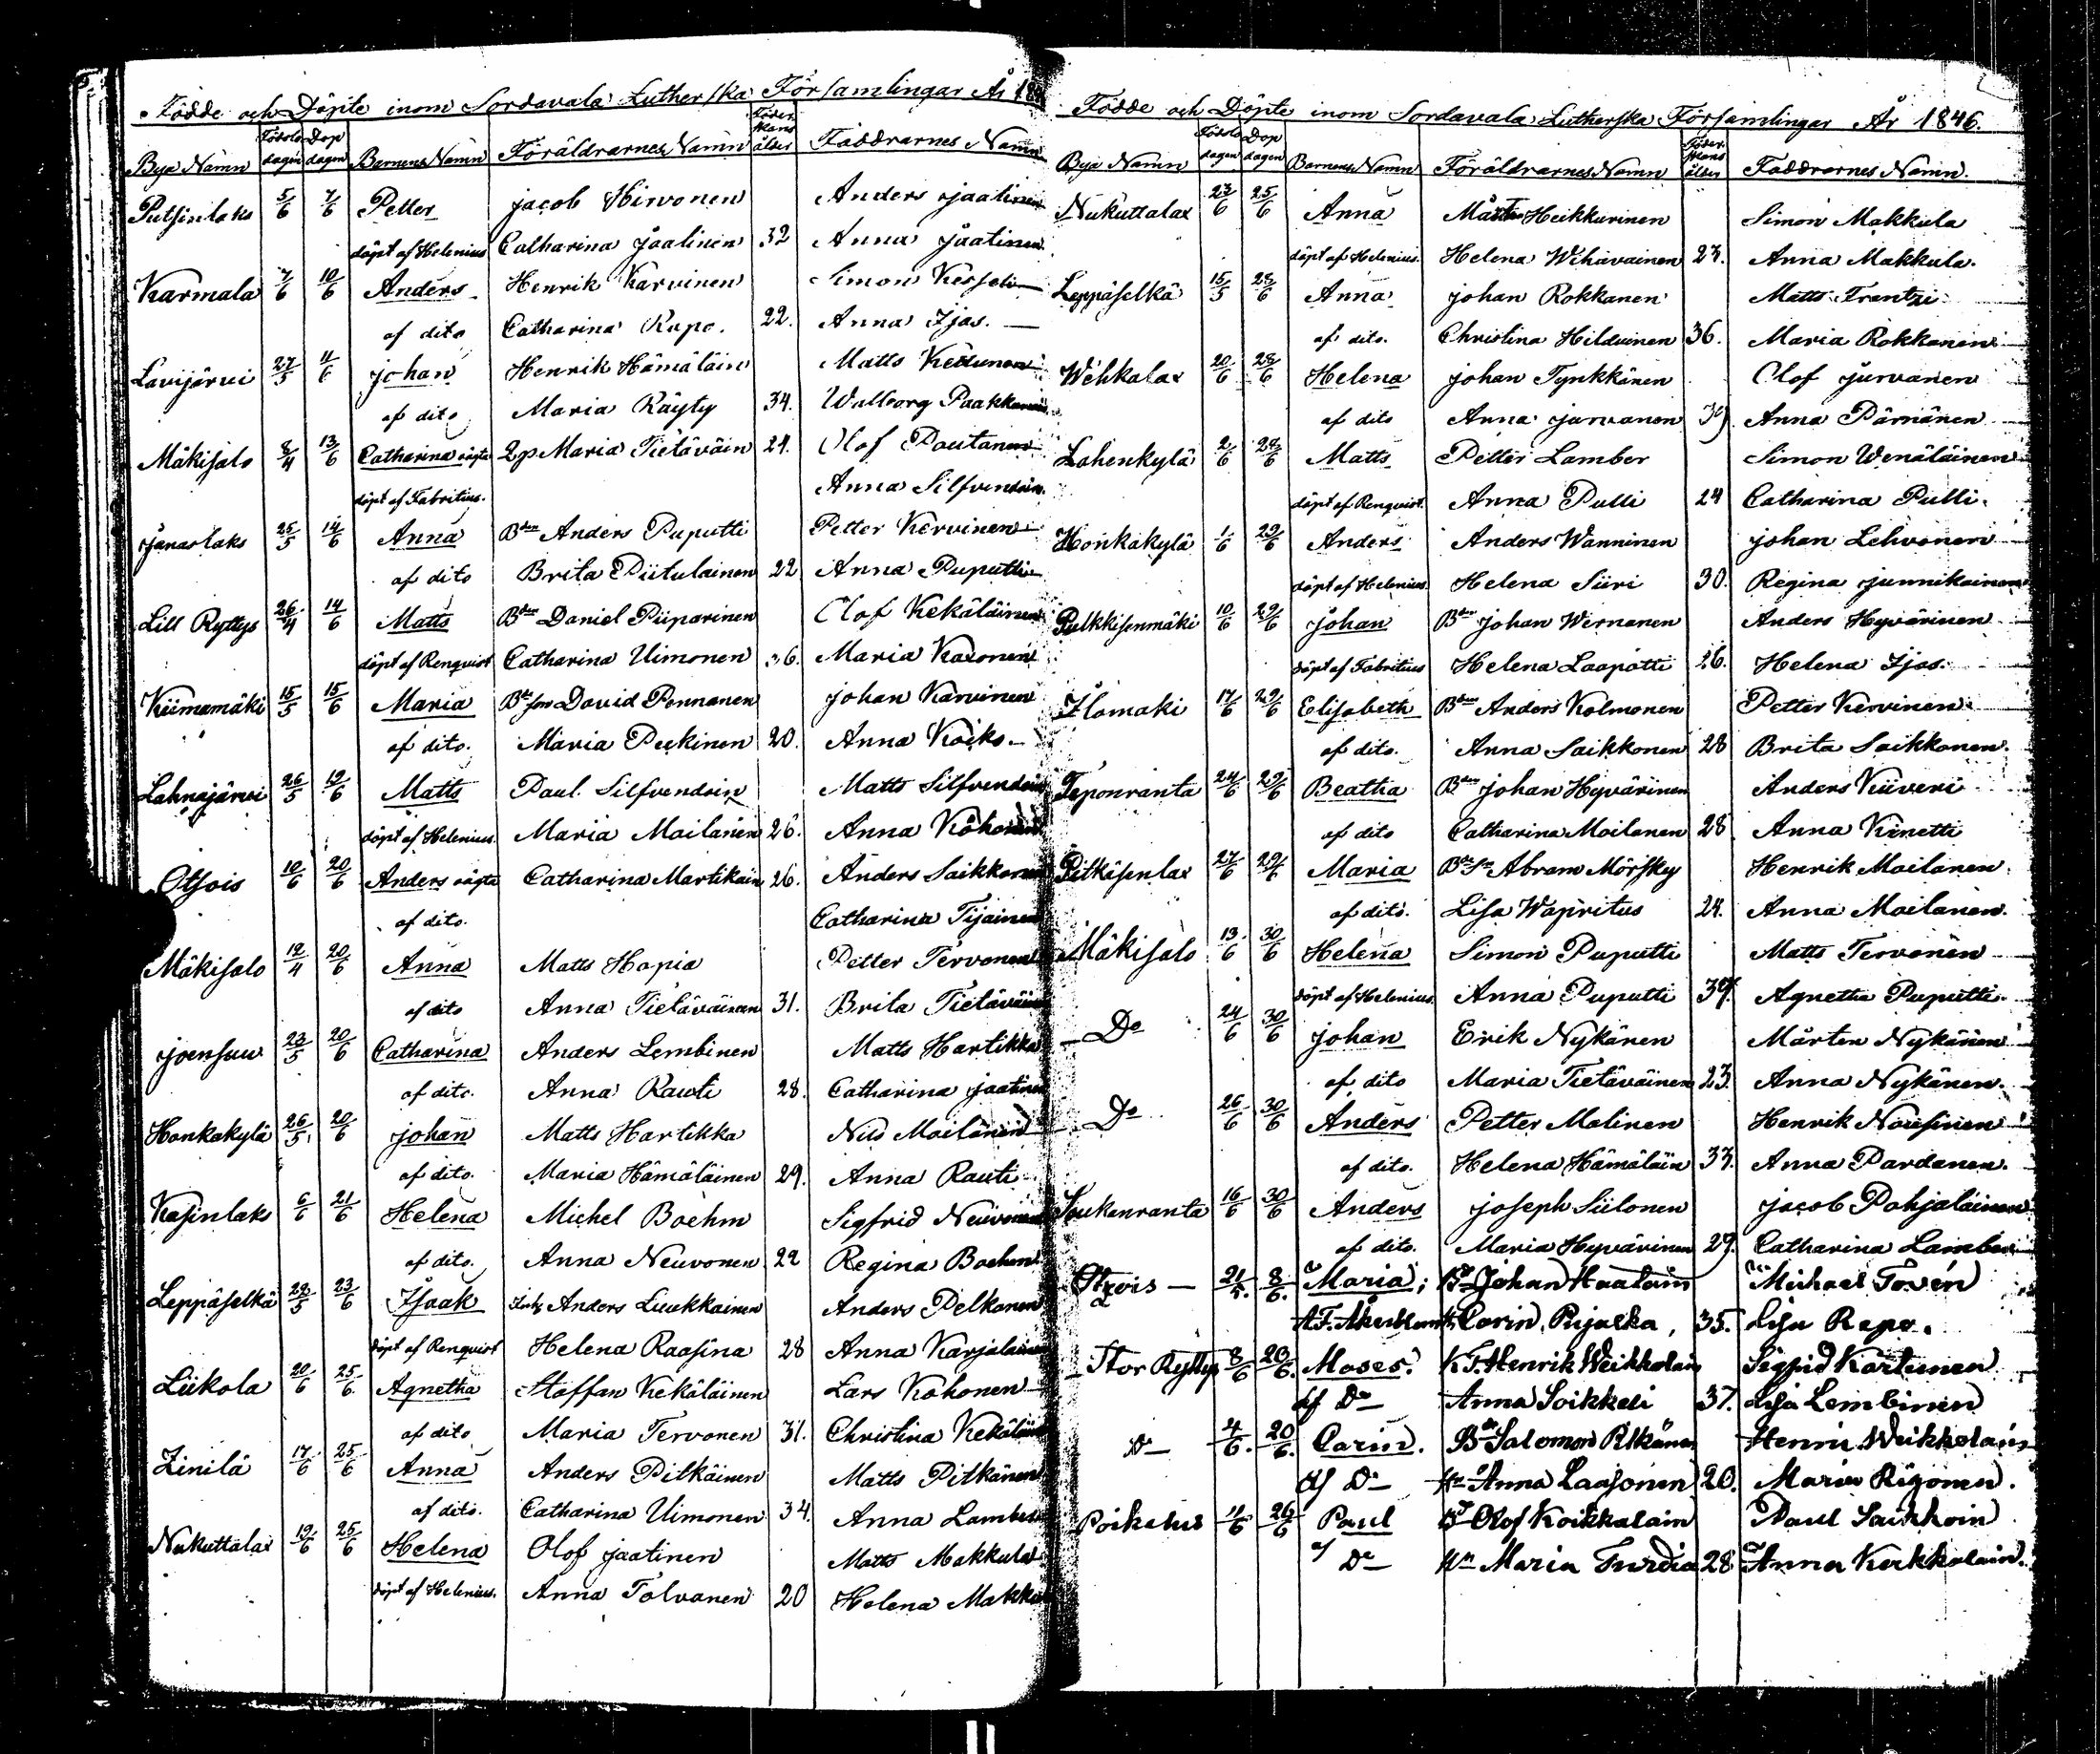 Födde och Döpte inom Sordavala Lutherska Församlingar År 18
Bya Namn Födelse dagen Dop dagen Barnens Namn Föräldrarnes Namn Föder- skans ålder Faddrarnes Namn
Putsinlaks 5/6 7/6 Petter Jacob Hirvonen Anders Jaatinen
döpt af Helenius Catharina Jaatinen 32 Anna Jaatinen
Karmala 7/6 10/6 Anders Henrik Karvinen Simon Kesseli
af dito Catharina Rapo. 22. Anna Ijas.
Lavijärvi 27/5 11/6 Johan Henrik Hämäläin Matts Kettunen
af dito Maria Räyty 34. Walborg Paakkunain
Mäkisalo 8/4 13/6 Catharina oägta Qp Maria Tietäväin 24. Olof Pautanen
döpt af Fabritius. Anna Silfvendoin
Jänaslaks 25/5 14/6 Anna Bden Anders Puputti Petter Kervinen
af dito Brita Piitulainen 22 Anna Puputti
Lill Ryttys 26/4 14/6 Matts Bden Daniel Piiparinen Olof Kekäläinen
döpt af Renqvist Catharina Uimonen 36. Maria Kaxonen
Kiimamäki 15/5 15/6 Maria Bde son David Pennanen Johan Karvinen
af dito. Maria Peekinen 20. Anna Koiko
Lahnajärvi 26/5 19/6 Matts Paul Silfvendoin Matts Silfvendoin
döpt af Helenius. Maria Moilanen 26. Anna Kohonen
Otsois 10/6 20/6 Anders oägta Catharina Martikain 26. Anders Saikkonen
af dito. Catharina Tijainen
Mäkisalo 12/4 20/6 Anna Matts Hapia Petter Tervonen
af dito Anna Tietäväinen 31. Brita Tietäväin
Joensuu 23/5 20/6 Catharina Anders Lembinen Matts Hartikka
af dito. Anna Rauti 28. Catharina Jaatinen
Honkakylä 26/5 20/6 Johan Matts Hartikka Nils Moilanen
af dito. Maria Hämäläinen 29. Anna Rauti
Kasinlaks 6/6 21/6 Helena Michel Boehm Sigfrid Neuvonen
af dito. Anna Neuvonen 22 Regina Boehm
Leppäselkä 22/5 23/6 Isaak Inh Anders Luukkainen Anders Pelkonen
döpt af Renqvist Helena Raasina 28 Anna Karjalainen
Liikola 20/6 25/6 Agnetha Staffan Kekäläinen Lars Kohonen
af dito Maria Tervonen 31. Christina Kekäläin
Zinilä 17/6 25/6 Anna Anders Pitkäinen Matts Pitkänen
af dito. Catharina Uimonen 34. Anna Lamber
Nukuttalax 19/6 25/6 Helena Olof Jaatinen Matts Makkula
döpt af Helenius. Anna Tolvanen 20 Helena Makkula
Födde och Döpte inom Sordavala Lutherska Församlingar År 1846.
Bya Namn Födelse dagen Dop dagen Barnens Namn Föräldrarnes Namn Föder- skans ålder Faddrarnes Namn.
Nukuttalax 23/6 25/6 Anna Mårten Heikkurinen Simon Makkula
döpt af Helenius. Helena Wihavainen 23. Anna Makkula.
Leppäselkä 15/5 28/6 Anna Johan Rokkanen Matts Frantzi
af dito. Christina Hildvinen 36. Maria Rokkanen
Wehkalax 20/6 28/6 Helena Johan Tynkkänen Olof Jurvanen
af dito Anna Jurvanen 39. Anna Pärnänen
Lahenkylä 2/6 28/6 Matts Petter Lamber Simon Wenäläinen
döpt af Renqvist. Anna Pulli 24 Catharina Pulli.
Honkakylä 1/6 29/6 Anders Anders Wanninen Johan Lehvonen
döpt af Helenius Helena Siiri 30. Regina Junnikainen
Pulkkisenmäki 10/6 29/6 Johan Bden Johan Wernanen Anders Hyvärinen
döpt af Fabritius Helena Laapotti 26. Helena Ijas.
Ilamäki 17/6 29/6 Elisabeth Bden Anders Kolmonen Petter Kervinen
af dito. Anna Saikkonen 28 Brita Saikkonen.
Teponranta 24/6 29/6 Beatha Bden Johan Hyvärinen Anders Kiiveri
af dito Catharina Moilanen 28 Anna Kinetti
Pitkäsenlax 27/6 29/6 Maria Bde Sn Abram Mörsky Henrik Moilanen
af dito. Lisa Wapritus 24. Anna Moilanen.
Mäkisalo 13/6 30/6 Helena Simon Puputti Matts Tervonen
döpt af Helenius. Anna Puputti 37. Agnetha Puputti.
Do 24/6 30/6 Johan Erik Nykänen Mårten Nykänen
af dito Maria Tietäväinen 23. Anna Nykänen.
Do 26/6 30/6 Anders Petter Malinen Henrik Nousinen
af dito. Helena Hämäläin 33. Anna Pardanen.
Soukanranta 16/6 30/6 Anders Joseph Siilonen Jacob Pohjaläinen
af dito. Maria Hyvärinen 29. Catharina Lamber
Otzois 21/5. 8/6. Maria; Johan Haatain Michael Tovén
Carin Pujalka, 35. Lisa Repo.
Stor Ryttys 8/6 20/6. Moses. Henrik Weikkolain Sigfrid Kartunen
af Do Anna Soikkeli 37. Lisa Lembinen
Do 4/6. 20/6. Carin. Bde Salomon Pitkänen Henric Weikkolain
af Do Hu Anna Laasonen 20. Maria Rigonen.
Poikelus 11/6 26/6 Paul Olof Koikkalain Paul Saikkoin
af Do Hu Maria Turdia 28 Anna Kukkolain.